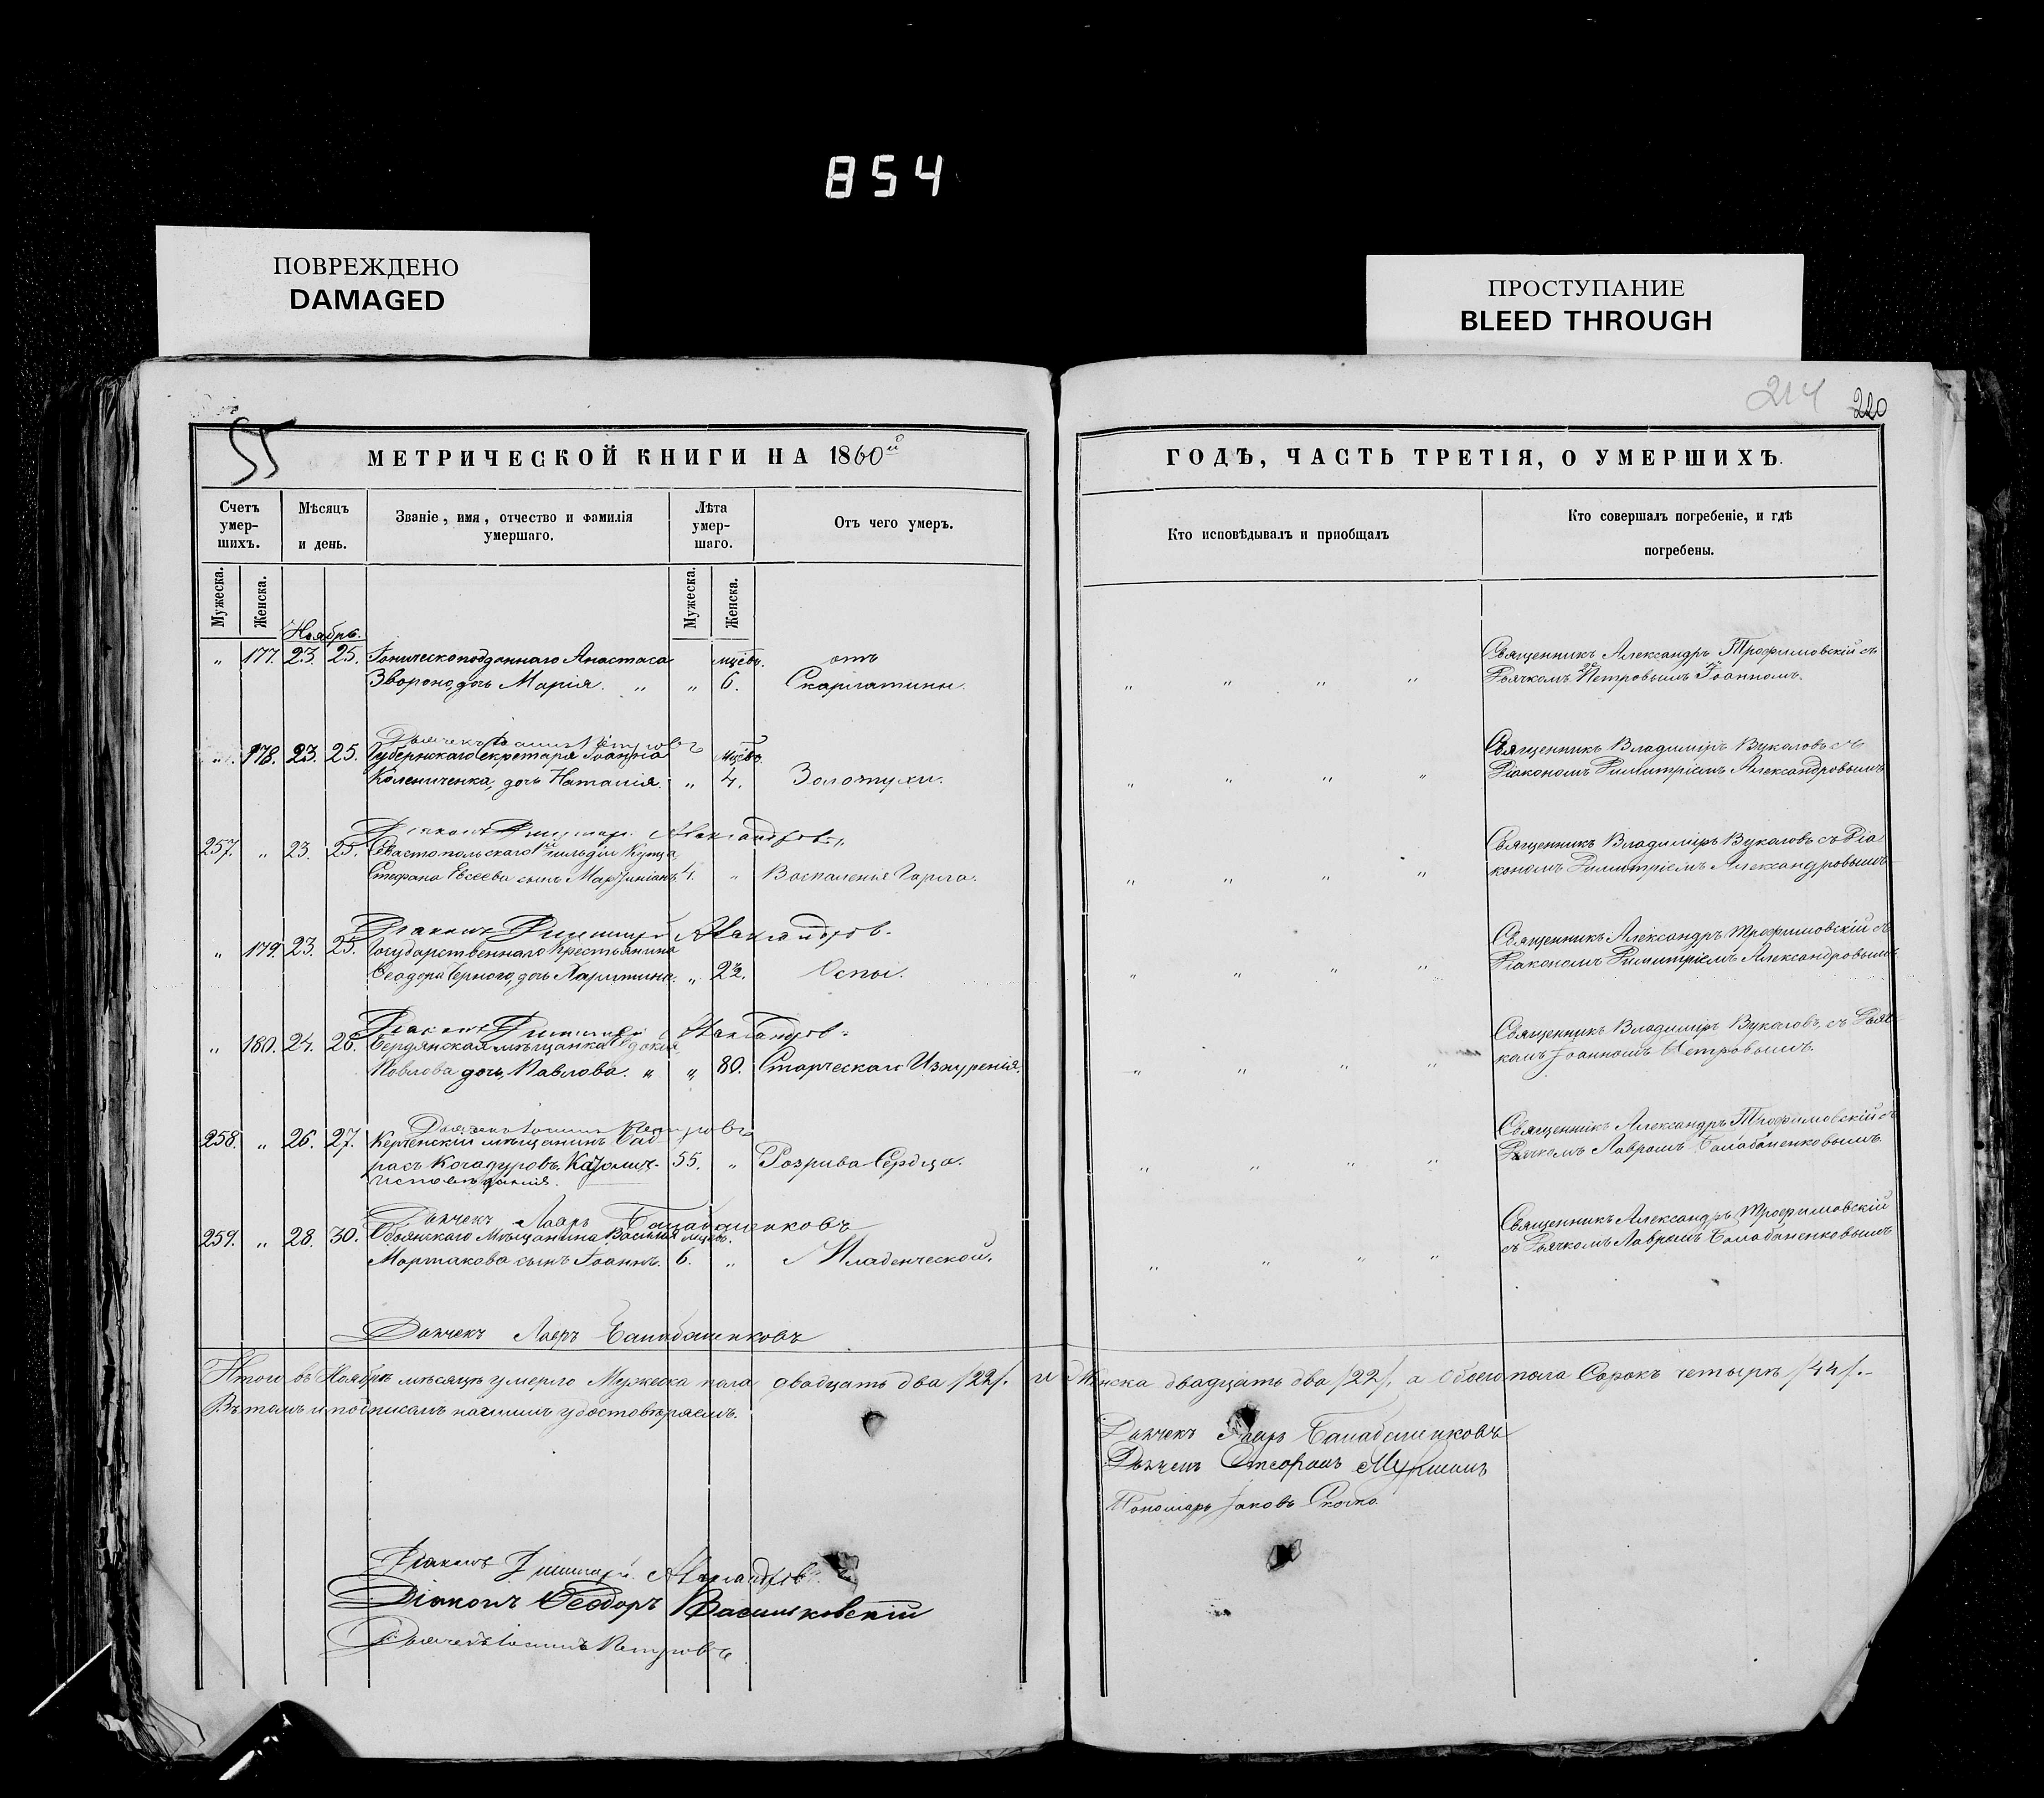 854
ПОВРЕЖДЕНО
DAMAGED
ПРОСТУПАНИЕ
BLEED THROUGH
214 220
55
МЕТРИЧЕСКОЙ КНИГИ НА 1860й
ГОДЪ, ЧАСТЬ ТРЕТІЯ, О УМЕРШИХЪ.
Счетъ умер-шихъ.
Мѣсяцъ и день.
Званіе, имя, отчество и фамилія умершаго.
Лѣта умер-шаго.
Отъ чего умеръ.
Кто исповѣдывалъ и пріобщалъ
Кто совершалъ погребеніе, и гдѣ погребены.
Мужеска. Женска. Мужеска. Женска.
Ноябрь.
„ 177. 23. 25. Іоническоподданнаго Анастаса мцевъ. отъ
Звороно, дочь Марія. „ „ 6. Скарлатины.
„ „ „ „
Священникъ Александръ Трофимовскій съ
Дьячкомъ Петровымъ Іоанномъ.
Дьячекъ Іоаннъ Петровъ
„ 178. 23. 25. Губернскаго секретаря Іоанна мцевъ
Калениченка, дочь Наталія. „ 4. Золотухи.
„ „ „ „
Священникъ Владиміръ Вукаловъ съ
Діакономъ Димитріемъ Александровымъ
Діаконъ Димитрій Александровъ
257. „ 23. 25. Севастопольскаго гильдіи Купца
Стефана Евсеева сынъ 4. „ Воспаленья Горла.
„ „ „ „
Священникъ Владиміръ Вукаловъ съ Діа
кономъ Димитріемъ Александровымъ
Діаконъ Димитрій Александров.
„ 179. 23. 25. Государственнаго Крестьянина
Ѳеодора Чернаго, дочь Харитина. „ 2½. Оспы.
„ „ „ „
Священникъ Александръ Трофимовскій съ
Діакономъ Димитріемъ Александровымъ
Діаконъ Димитрій Александров.
„ 180. 24. 26. Бердянская мѣщанка Евдокія
Павлова дочь, Павлова. „ „ 80. Старческаго Изнуренія.
„ „ „ „
Священникъ Владиміръ Вукаловъ, съ Дьяч
комъ Іоанномъ Петровымъ.
Дьячекъ Іоаннъ Петровъ
258. „ 26. 27. Керченскій мѣщанинъ
Качадуровъ, Католич. 55. „ Розрыва Сердца.
исповѣданія.
„ „ „ „
Священникъ Александръ Трофимовскій съ
Дьячкомъ Лавромъ Балабаненковымъ.
Дьячекъ Лавръ Балабаненковъ
259. „ 28. 30. Обоянскаго Мѣщанина Василія мцевъ.
Мартакова сынъ Іоаннъ. 6. „ Младенческой.
„ „ „ „
Священникъ Александръ Трофимовскій
съ Дьячкомъ Лавромъ Балабаненковымъ
Дьячекъ Лавръ Балабаненковъ
Итого въ Ноябрѣ мѣсяцѣ умерло Мужеска пола двадцать два /22/. и Женска двадцать два /22/, а Обоего пола Сорокъ четыре /44/.-
Въ томъ и подписомъ нашимъ удостовѣряемъ.
Дьячекъ Лавръ Балабаненковъ
Дьячекъ
Пономарь Іаковъ
Діаконъ Димитрій Александровъ.
Діаконъ Ѳеодоръ Васильковскій
Дьячекъ Іоаннъ Петровъ